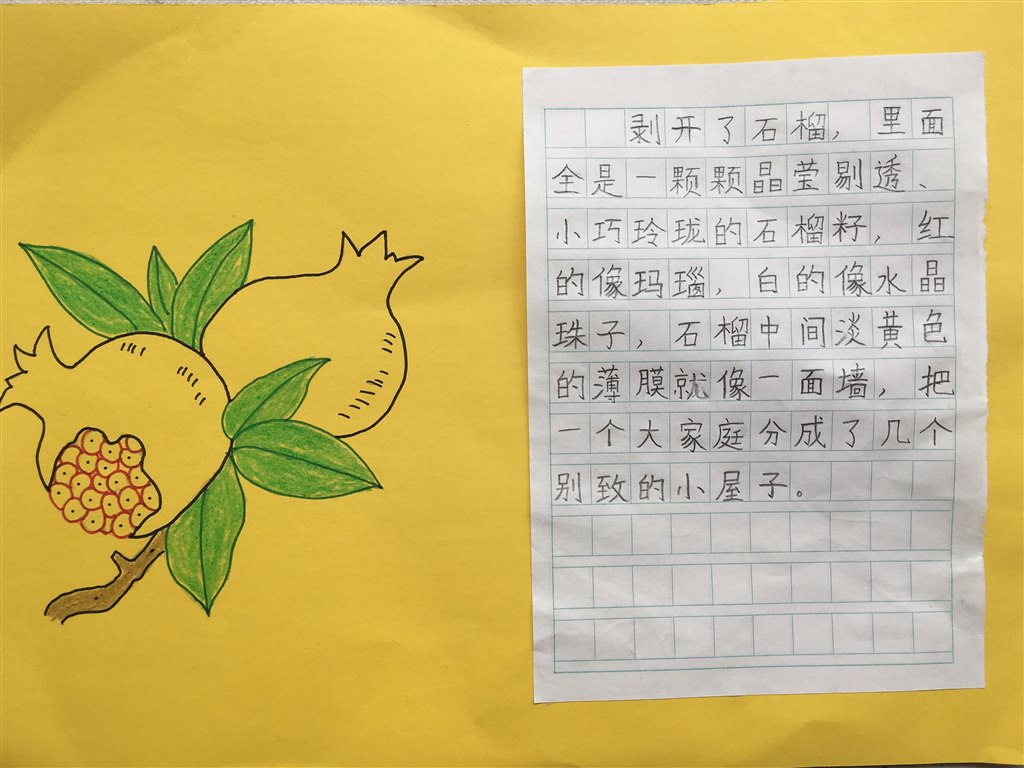 剥开了石榴，里面
全是一颗颗晶莹剔透、
小巧玲珑的石榴籽，红
的像玛瑙，白的像水晶
珠子，石榴中间淡黄色
的薄膜就像一面墙，把
一个大家庭分成了几个
别致的小屋子。